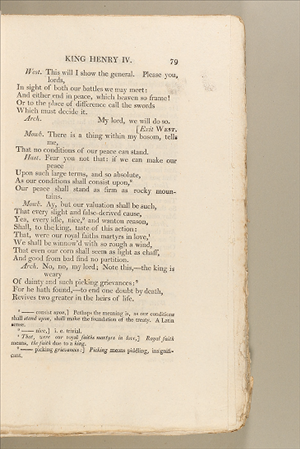 KING HENRY IV. 79
West. This will I show the general. Please you,
lords,
In sight of both our battles we may meet:
And either end in peace, which heaven so frame!
Or to the place of difference call the swords
Which must decide it.
Arch. My lord, we will do so.
[Exit WEST.
Mowb. There is a thing within my bosom, tells
me,
That no conditions of our peace can stand.
Hast. Fear you not that: if we can make our
peace
Upon such large terms, and so absolute,
As our conditions shall consist upon,
Our peace shall stand as firm as rocky moun-
tains.
Mowb. Ay, but our valuation shall be such,
That every slight and false-derived cause,
Yea, every idle, nice, and wanton reason,
Shall, to the king, taste of this action:
That, were our royal faiths martyrs in love,
We shall be winnow'd with so rough a wind,
That even our corn shall seem as light as chaff,
And good from bad find no partition.
Arch. No, no, my lord; Note this,—the king is
weary
Of dainty and such picking grievances:
For he hath found,—to end one doubt by death,
Revives two greater in the heirs of life.
—— consist upon,] Perhaps the meaning is, as our conditions
shall stand upon, shall make the foundation of the treaty. A Latin
sense.
—— nice,] i. e. trivial.
That, were our royal faiths martyrs in love,] Royal faith
means, the faith due to a king.
—— picking grievances:] Picking means piddling, insignifi-
cant.